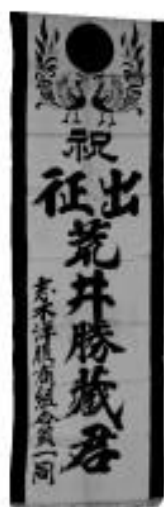 祝
出征
荒井勝蔵君
青木洋服商組合員一同